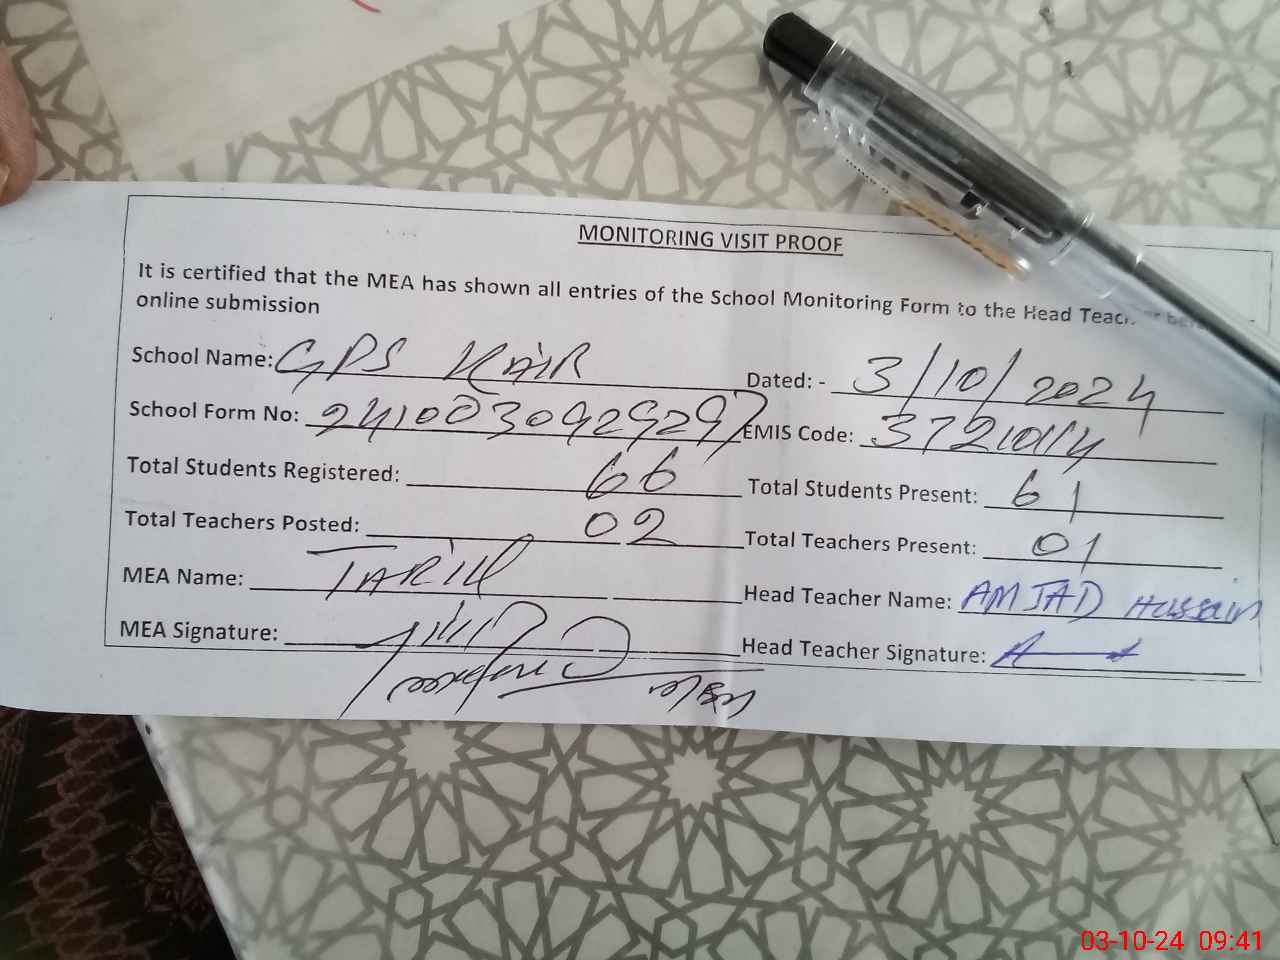 MONITORING VISIT PROOF
It is certified that the MEA has shown all entries of the School Monitoring Form to the Head Teacher
online submission
School Name: GPS KAIR Dated: - 3/10/2024
School Form No: 2410030929297 EMIS Code: 37210114
Total Students Registered: 66 Total Students Present: 61
Total Teachers Posted: 02 Total Teachers Present: 01
MEA Name: TARIQ Head Teacher Name: AMJAD Hussain
MEA Signature: Head Teacher Signature:
03-10-24 09:41